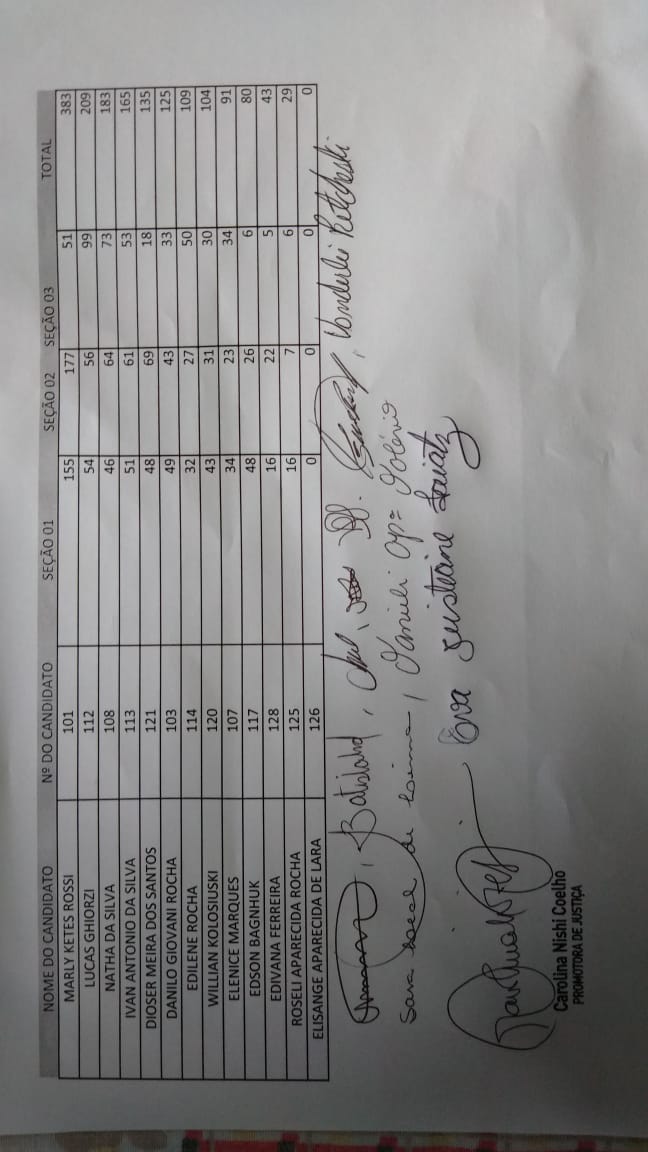 NOME DO CANDIDATO Nº DO CANDIDATO SEÇÃO 01 SEÇÃO 02 SEÇÃO 03 TOTAL
MARLY KETES ROSSI 101 155 177 51 383
LUCAS GHIORZI 112 54 56 99 209
NATHA DA SILVA 108 46 64 73 183
IVAN ANTONIO DA SILVA 113 51 61 53 165
DIOSER MEIRA DOS SANTOS 121 48 69 18 135
DANILO GIOVANI ROCHA 103 49 43 33 125
EDILENE ROCHA 114 32 27 50 109
WILLIAN KOLOSIUSKI 120 43 31 30 104
ELENICE MARQUES 107 34 23 34 91
EDSON BAGNHUK 117 48 26 6 80
EDIVANA FERREIRA 128 16 22 5 43
ROSELI APARECIDA ROCHA 125 16 7 6 29
ELISANGE APARECIDA DE LARA 126 0 0 0 0
Vanderlei
Sara de Danieli Ap=
Eva
Carolina Nishi Coelho
PROMOTORA DE JUSTIÇA